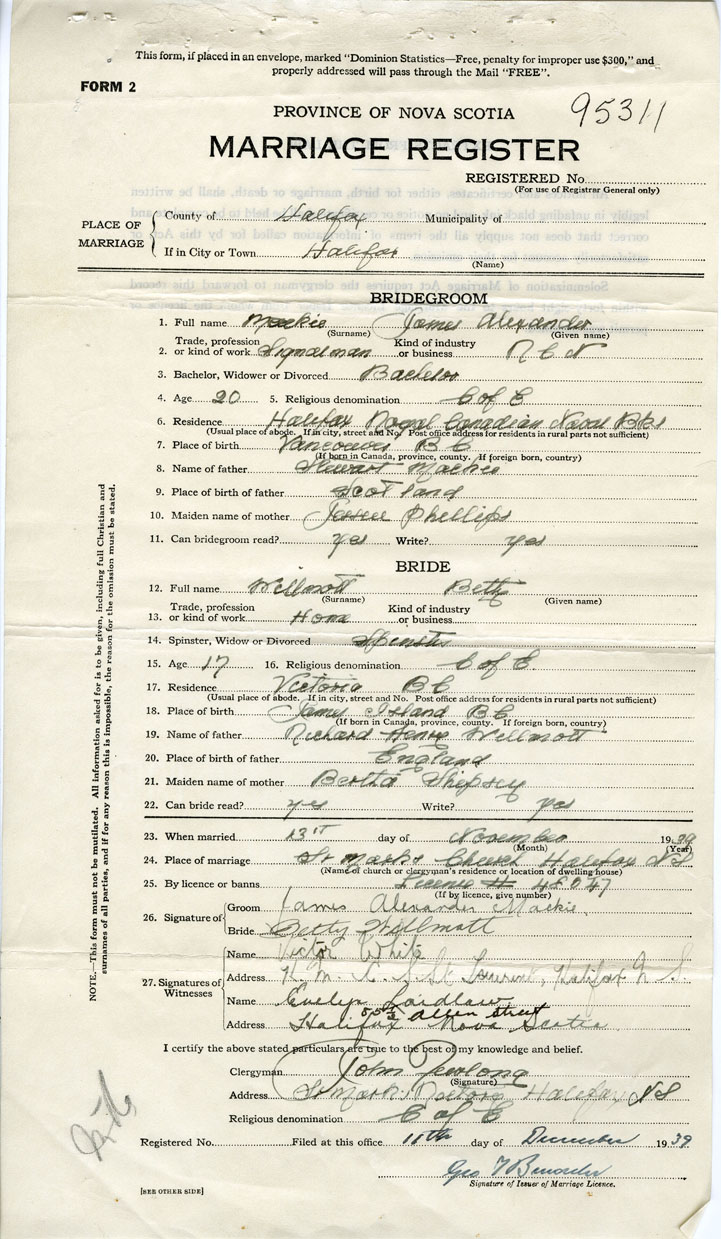 This form, if placed in an envelope, marked "Dominion Statistics—Free, penalty for improper use $300," and
properly addressed will pass through the Mail "FREE".
FORM 2
95311
PROVINCE OF NOVA SCOTIA
MARRIAGE REGISTER
REGISTERED No.
(For use of Registrar General only)
PLACE OF MARRIAGE
County of Halifax Municipality of
If in City or Town Halifax
(Name)
BRIDEGROOM
1. Full name Mackie James Alexander
(Surname) (Given name)
2. Trade, profession or kind of work Signalman Kind of industry or business R C N
3. Bachelor, Widower or Divorced Bachelor
4. Age 20 5. Religious denomination C of E
6. Residence Halifax Royal Canadian Naval Bks
(Usual place of abode. If in city, street and No. Post office address for residents in rural parts not sufficient)
7. Place of birth Vancouver B C
(If born in Canada, province, county. If foreign born, country)
8. Name of father Stewart Mackie
9. Place of birth of father Scotland
10. Maiden name of mother Jessie Phillips
11. Can bridegroom read? yes Write? yes
BRIDE
12. Full name Willmott Betty
(Surname) (Given name)
13. Trade, profession or kind of work Home Kind of industry or business
14. Spinster, Widow or Divorced Spinster
15. Age 17 16. Religious denomination C of E.
17. Residence Victoria B C
(Usual place of abode. If in city, street and No. Post office address for residents in rural parts not sufficient)
18. Place of birth James Island B C
(If born in Canada, province, county. If foreign born, country)
19. Name of father Richard Henry Willmott
20. Place of birth of father England
21. Maiden name of mother Bertha Shepsey
22. Can bride read? yes Write? yes
23. When married 13th day of November 1939
(Month) (Year)
24. Place of marriage St Mark's Church Halifax N S
(Name of church or clergyman's residence or location of dwelling house)
25. By licence or banns License # 48047
(If by licence, give number)
26. Signature of
Groom James Alexander Mackie.
Bride Betty Willmott
27. Signatures of Witnesses
Name Victor White
Address H. M. C. S. St. Laurent, Halifax N S
Name Evelyn Laidlaw
55½ Allen Street
Address Halifax Nova Scotia
I certify the above stated particulars are true to the best of my knowledge and belief.
Clergyman John Furlong
(Signature)
Address St Mark's Rectory Halifax N S
Religious denomination C of E
Registered No. Filed at this office 11th day of December 1939.
Geo
Signature of Issuer of Marriage Licence.
[SEE OTHER SIDE]
NOTE.—This form must not be mutilated. All information asked for is to be given, including full Christian and
surnames of all parties, and if for any reason this is impossible, the reason for the omission must be stated.